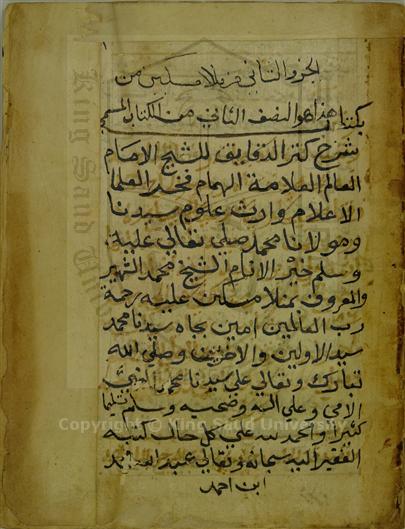 ١
الجزء الثاني من ملا مسكين من
يكتنا هذا هو النصف الثاني من الكتاب المسمى
بشرح كنز الدقايق للشيخ الامام
العالم العلامة الهمام فخر العلما
الاعلام وارث علوم سيدنا
ومولانا محمد صلي تعالي عليه
وسلم خير الانام الشيخ محمد الشهير
والمعروف بمنلا مسكين عليه رحمة
رب العالمين امين بجاه سيدنا محمد
سيد الاولين والاخرين وصلي الله
تبارك وتعالي علي سيدنا محمد النبي
الامي وعلي اله وصحبه وسلم تسليما
كثيرا والحمد لله علي كل حال كتبه
الفقير اليه سبحانه وتعالي عبد الله
ابن احمد
King Saud University
Copyright © King Saud University